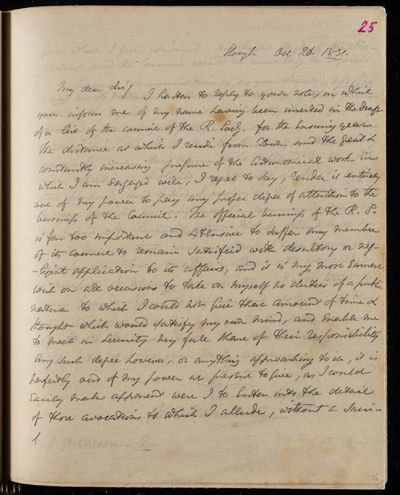 25
Slough Oct 26. 1831.
My dear Sir / I hasten to reply to your note, in which
you inform me of my name having been inserted in the draft
of a List of the council of the R. Soc.y for the ensuing year.
The distance at which I reside from Town, and the great &
constantly increasing pressure of the Astronomical work in
which I am engaged will, I regret to say, render it entirely
out of my power to pay any proper degree of attention to the
business of the Council. The official business of the R. S.
is far too important and extensive to suffer any member
of its council to remain satisfied with desultory or neg-
-ligent application to its affairs, and it is my most earnest
wish on all occasions to take on myself no duties of a public
nature to which I could not give that amount of time &
thought which would satisfy my own mind, and enable me
to meet in security my full share of their responsibility
Any such degree however, or anything approaching to it, it is
perfectly out of my power at present to give, as I could
easily make apparent were I to enter into the detail
of those avocations to which I allude, without a sacri-